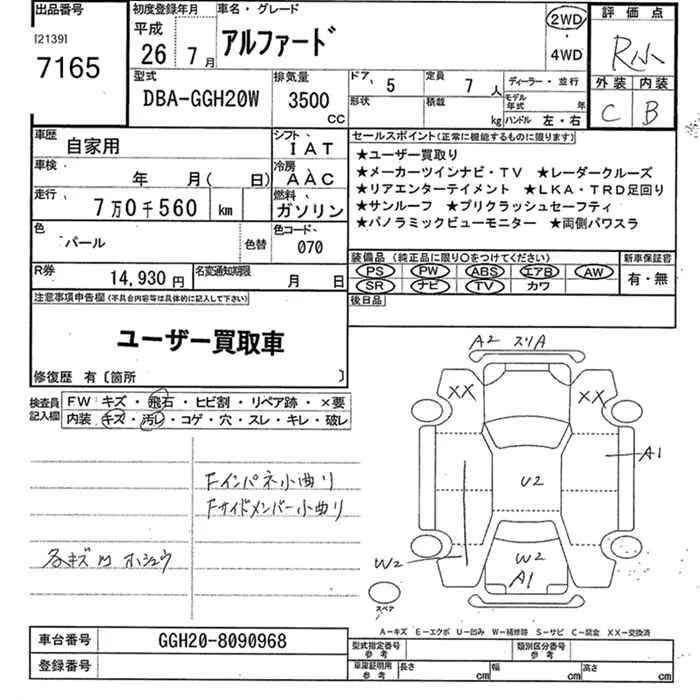 出品番号 初度登録年月 車名・グレード 2WD 評価点
[2139] 平成 アルファード ・ R小
7165 26 7月 4WD 外装 内装
型式 排気量 ドア、 5 定員 7 人 ディーラー・並行 C B
DBA-GGH20W 3500 CC 形状 積載 kg モデル年式 年
ハンドル 左・右
車歴 自家用 シフト、 IAT セールスポイント(正常に機能するものに限ります)
車検、 年 月( 日) 冷房 AAC ★ユーザー買取り
★メーカーツインナビ・TV ★レーダークルーズ
走行、 7万0千560 km 燃料、 ガソリン ★リアエンターテイメント ★LKA・TRD足回り
★サンルーフ ★プリクラッシュセーフティ
色 パール 色替 色コード、 070 ★パノラミックビューモニター ★両側パワスラ
装備品(純正品に限り〇をつけてください) 新車保証書
R券 14,930円 名変通知期限 月 日 PS PW ABS エアB AW 有・無
SR ナビ TV カワ
注意事項申告欄(不具合内容等は具体的に記入して下さい) 後日品
ユーザー買取車
修復歴 有〔箇所 〕
A2 スリA
検査員記入欄 FW キズ・飛石・ヒビ割・リペア跡・×要
内装 キズ・汚レ・コゲ・穴・スレ・キレ・破レ
XX XX
A1
Fインパネ小曲り
Fサイドメンバー小曲り
U2
各キズ凹ホシュウ
W2 W2
A1
スペア
A-キズ E-エクボ U-凹み W-補修跡 S-サビ C-腐食 XX-交換済
車台番号 GGH20-8090968 型式指定番号 参考 類別区分番号 参考
登録番号 車庫証明用 参考 長さ cm 幅 cm 高さ cm